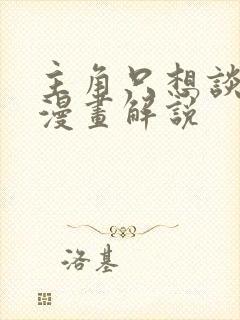 主角只想談
漫畫解說
洛基